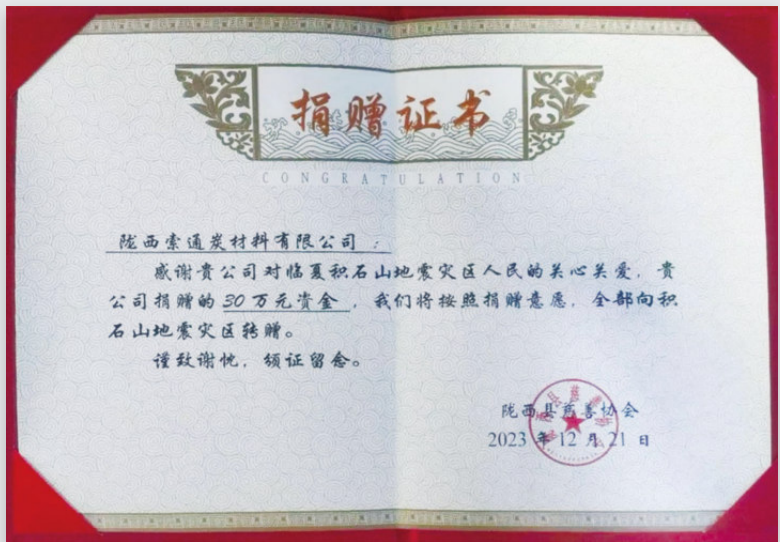 捐赠证书
CONGRATULATION
陇西索通炭材料有限公司：
感谢贵公司对临夏积石山地震灾区人民的关心关爱，贵
公司捐赠的30万元资金，我们将按照捐赠意愿，全部向积
石山地震灾区转赠。
谨致谢忱，颁证留念。
陇西县慈善协会
2023年12月21日